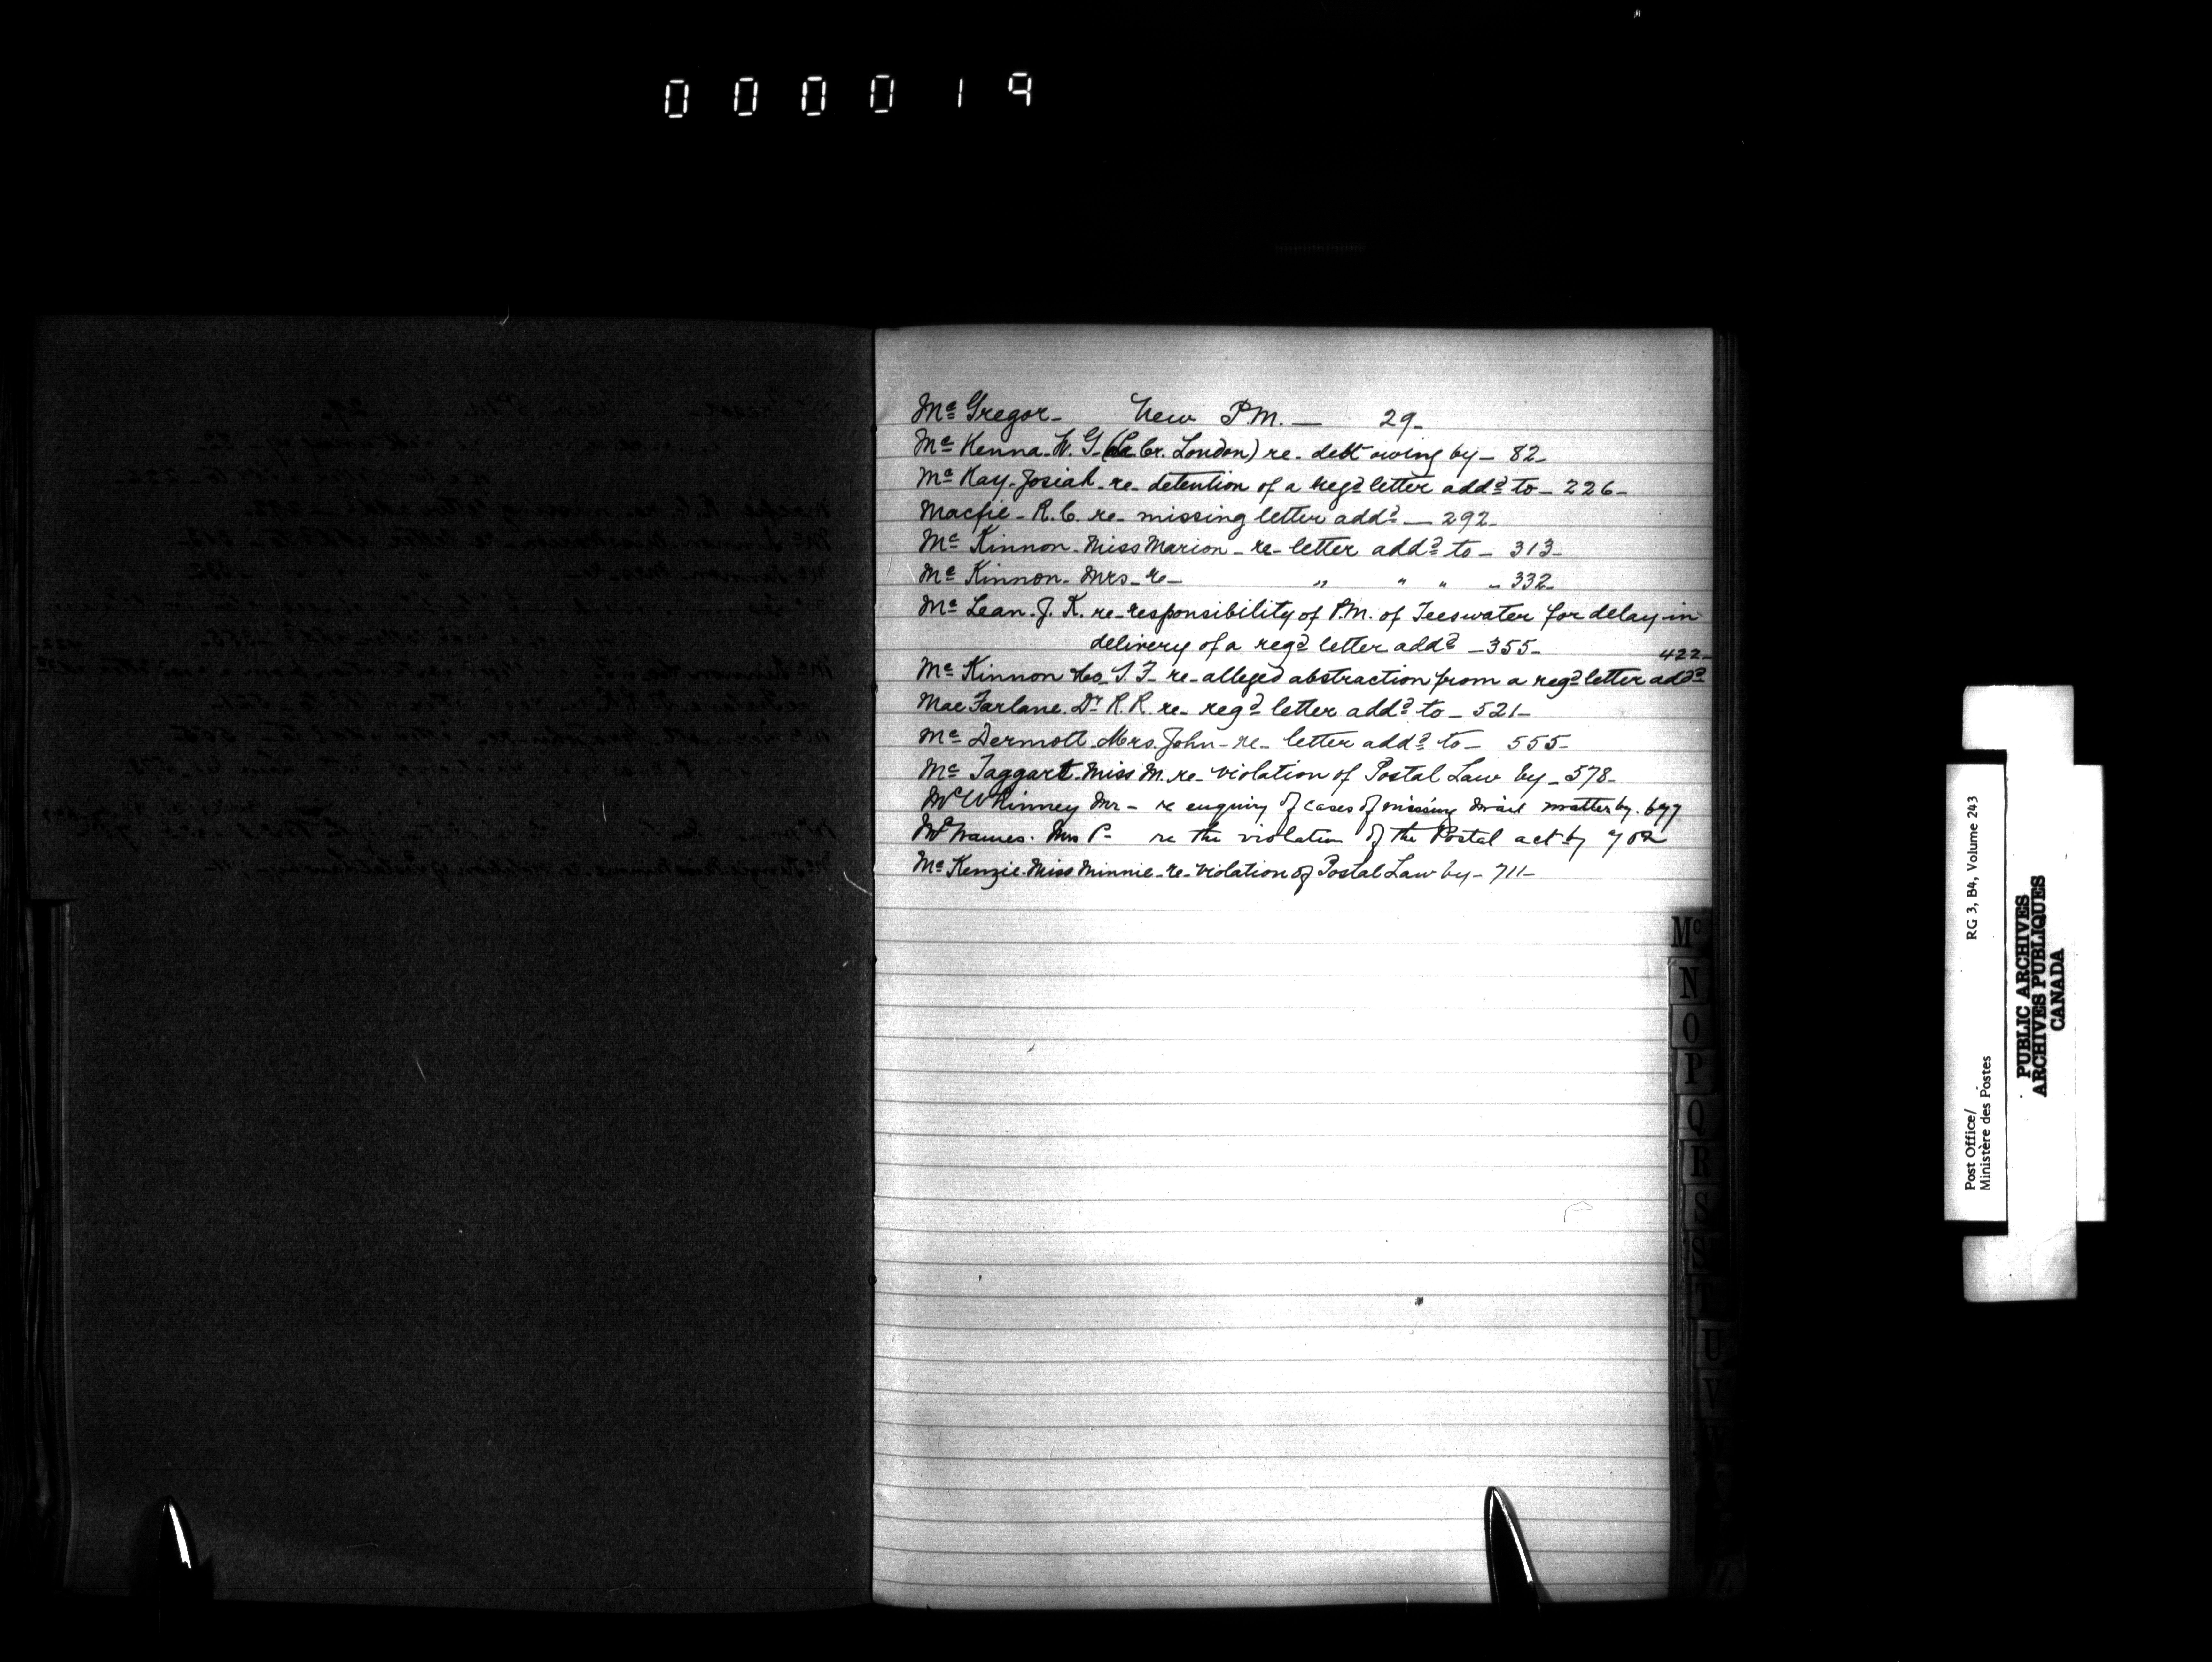 000019
Mc Gregor - New P.M. — 29-
Mc Kenna - W. G. ( Cr. London) re- debt owing by - 82-
Mc Kay - Josiah - re- detention of a regd letter addd to - 226-
Macfie - R. C. re- missing letter addd — 292-
Mc Kinnon - Miss Marion - re- letter addd to - 313-
Mc Kinnon - Mrs - re- " " " " 332-
Mc Lean. J. K. re- responsibility of P.M. of Teeswater for delay in
delivery of a regd letter addd - 355-
422-
Mc Kinnon &Co. S. F. re- alleged abstraction from a regd letter addd
MacFarlane. Dr R. R. re- regd letter addd to - 521-
Mc Dermott - Mrs. John - re- letter addd to - 555-
Mc Taggart - Miss M. re- violation of Postal Law by - 578-
McWhinney Mr - re enquiry of cases of missing mail matter by. 697
Mrs P- re the violation of the Postal act by 702
Mc Kenzie - Miss Minnie - re- violation of Postal Law by - 711-
Mc
N
O
P
Q
R
S
S
U
V
Z
Post Office/ RG 3, B4, Volume 243
Ministère des Postes
PUBLIC ARCHIVES
ARCHIVES PUBLIQUES
CANADA